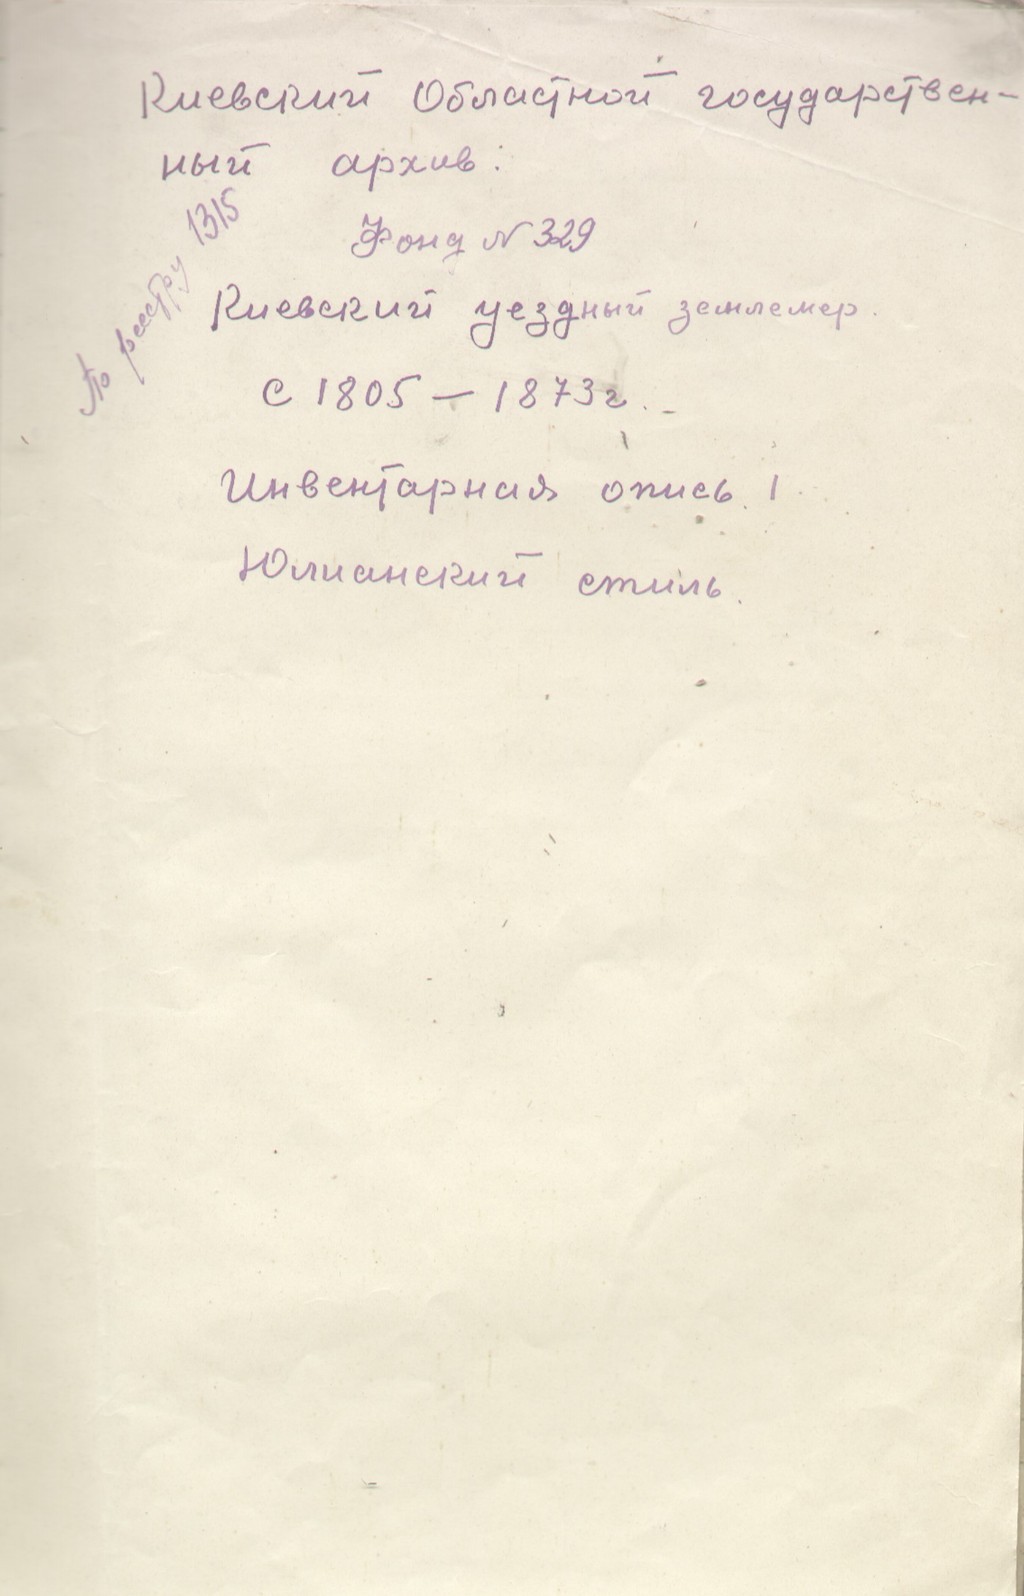 Киевский Областной государствен-
ный архив:
По реестру 1315
Фонд N 329
Киевский уездный землемер.
С 1805 — 1873 г.
Инвентарная опись. 1
Юлианский стиль.